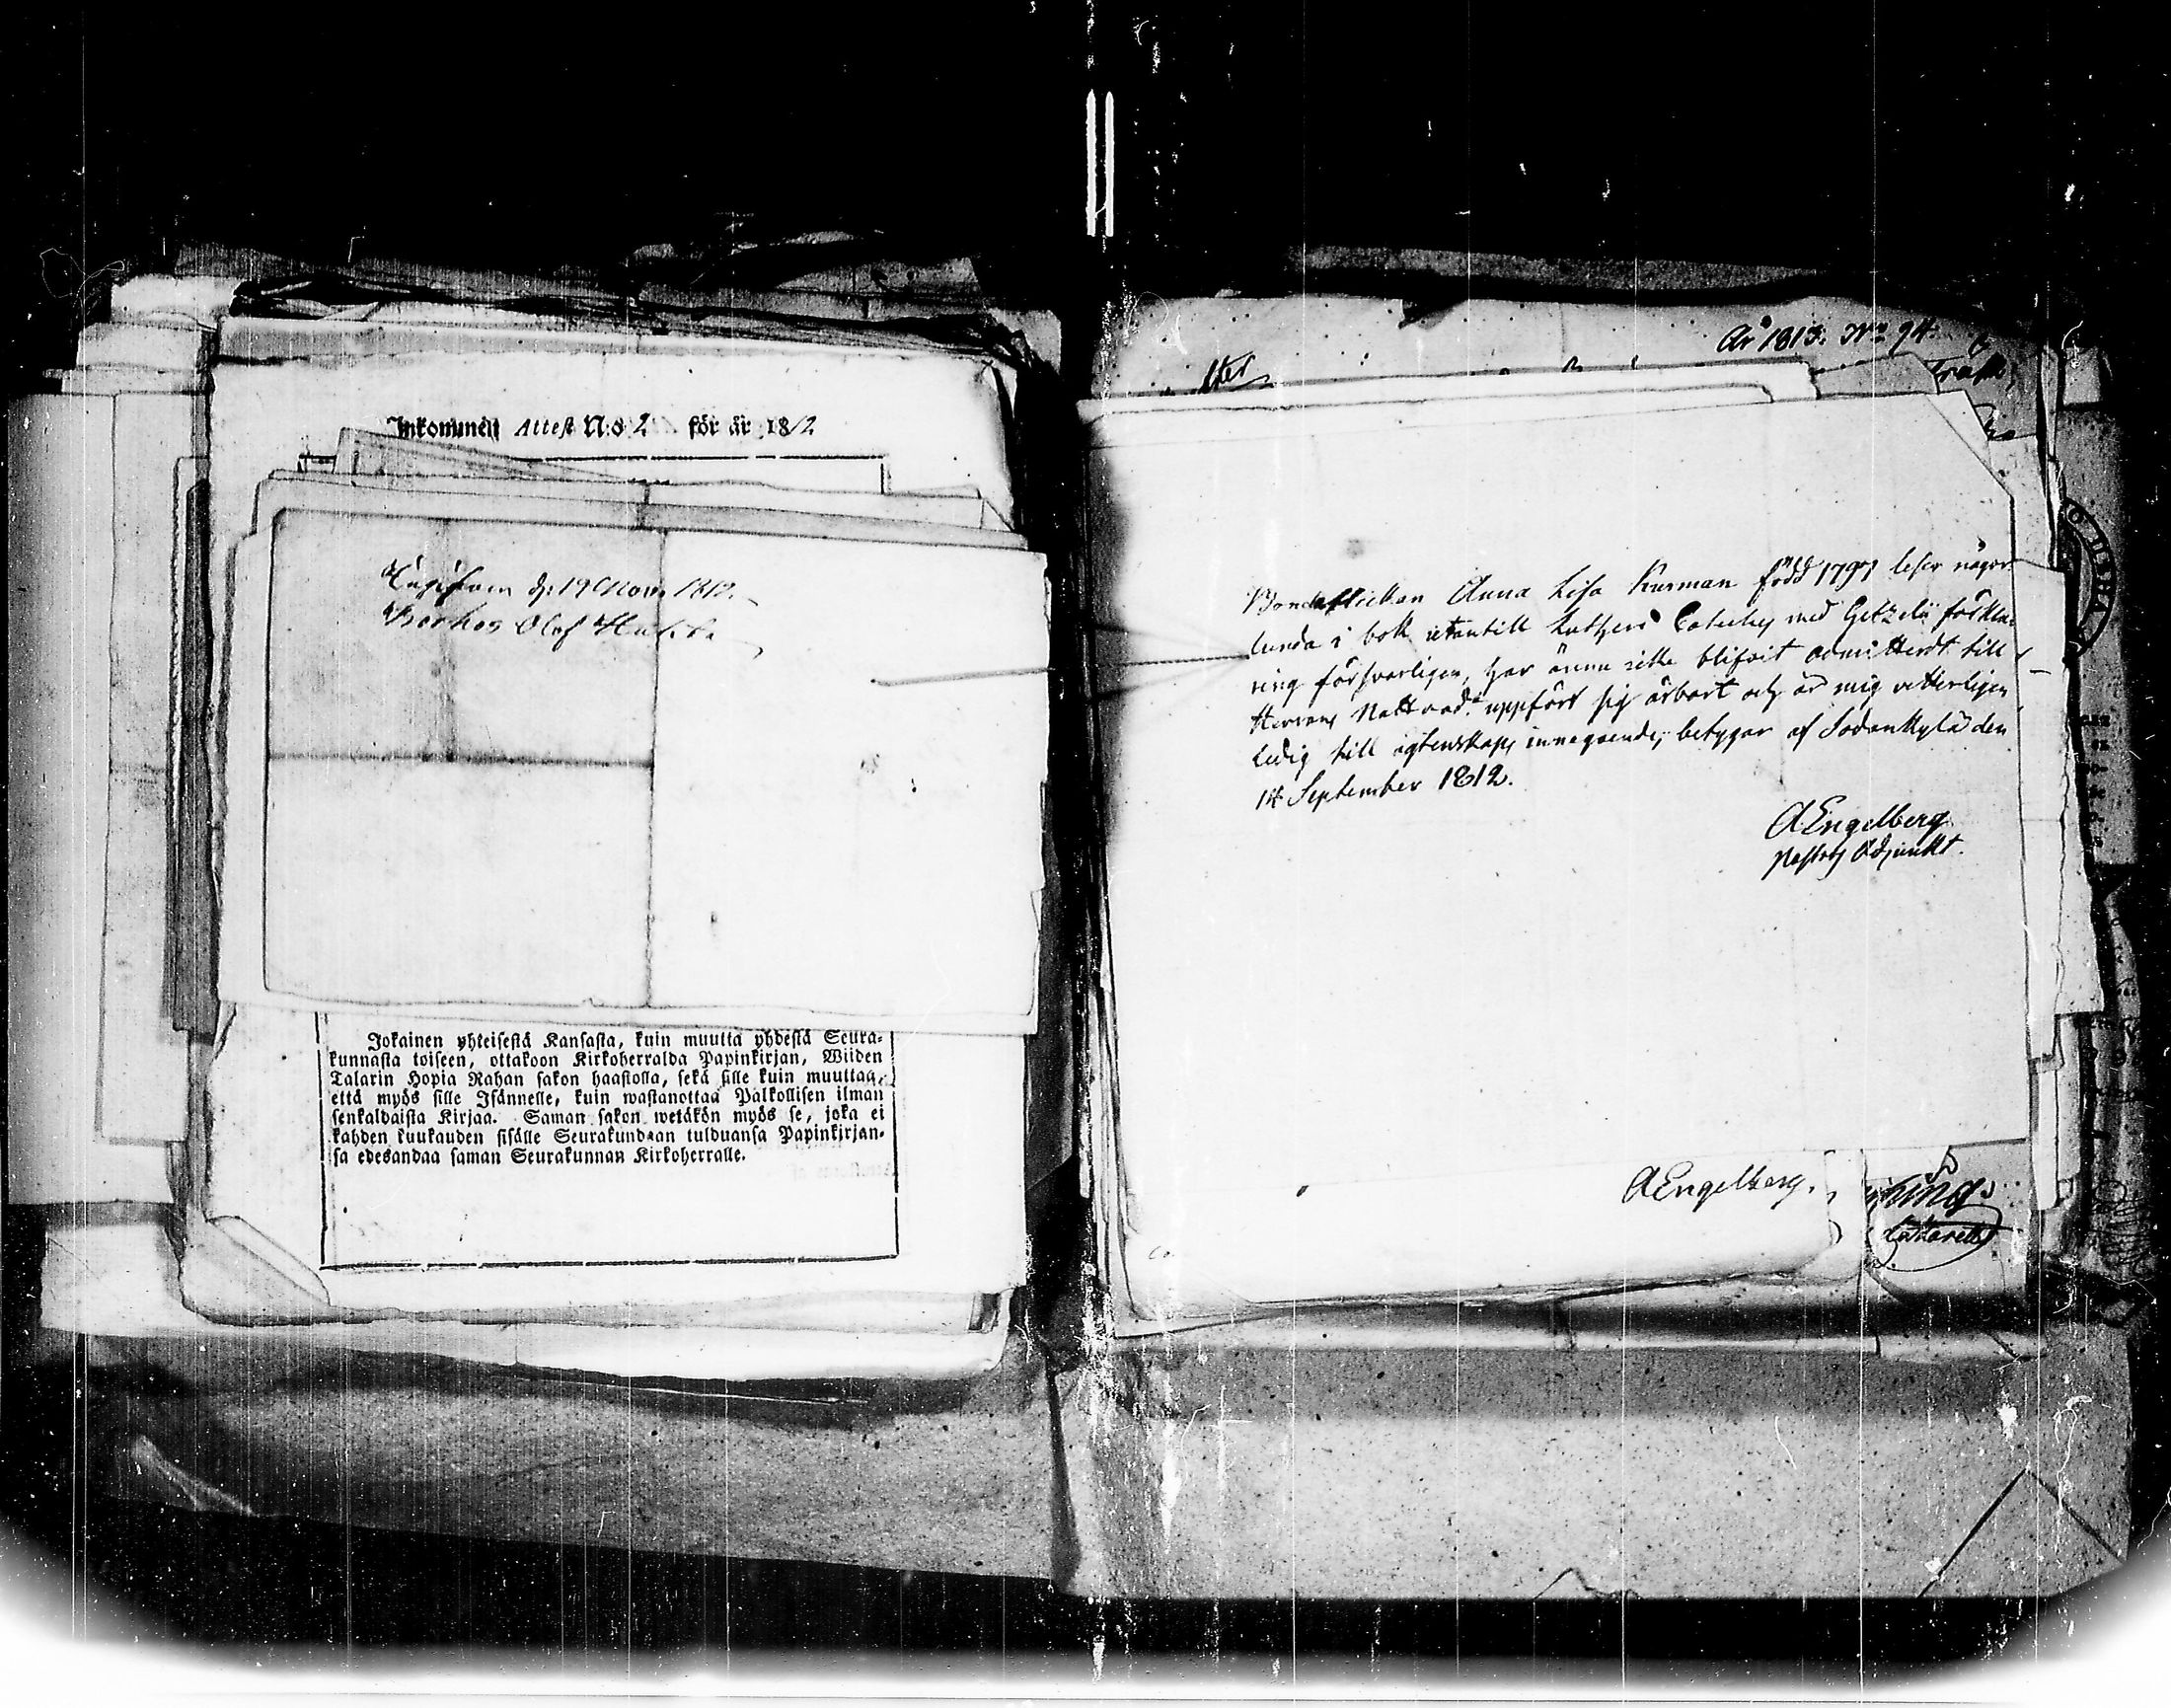 Inkommen Attest N:o 2 för år 1812
d: 19 Nov. 1812.
Olof
Jokainen yhteisestä Kansasta, kuin muutta yhdestä Seura-
kunnasta toiseen, ottakoon Kirkoherralda Papinkirjan, Wiiden
Talarin Hopia Rahan sakon haastolla, sekä sille kuin muuttaa,
että myös sille Isännelle, kuin wastanottaa Palkollisen ilman
senkaldaista Kirjaa. Saman sakon wetäkön myös se, joka ei
kahden kuukauden sisälle Seurakundaan tulduansa Papinkirjan-
sa edesandaa saman Seurakunnan Kirkoherralle.
År 1813. No 94.
Bondeflickan Anna Lisa Kurman född 1797 läser någor
lunda i bok, utantill Lutheri Cateches med Getzelii förkla-
ring försvarligen, har ännu icke blifvit admitterdt till
Herrans Nattvard, uppfört sig ärbart och är mig vetterligen
ledig till ägtenskaps inngående, betygar af Sodankylä den
14 September 1812.
A Engelberg
Pastors Adjunkt.
A Engelberg.